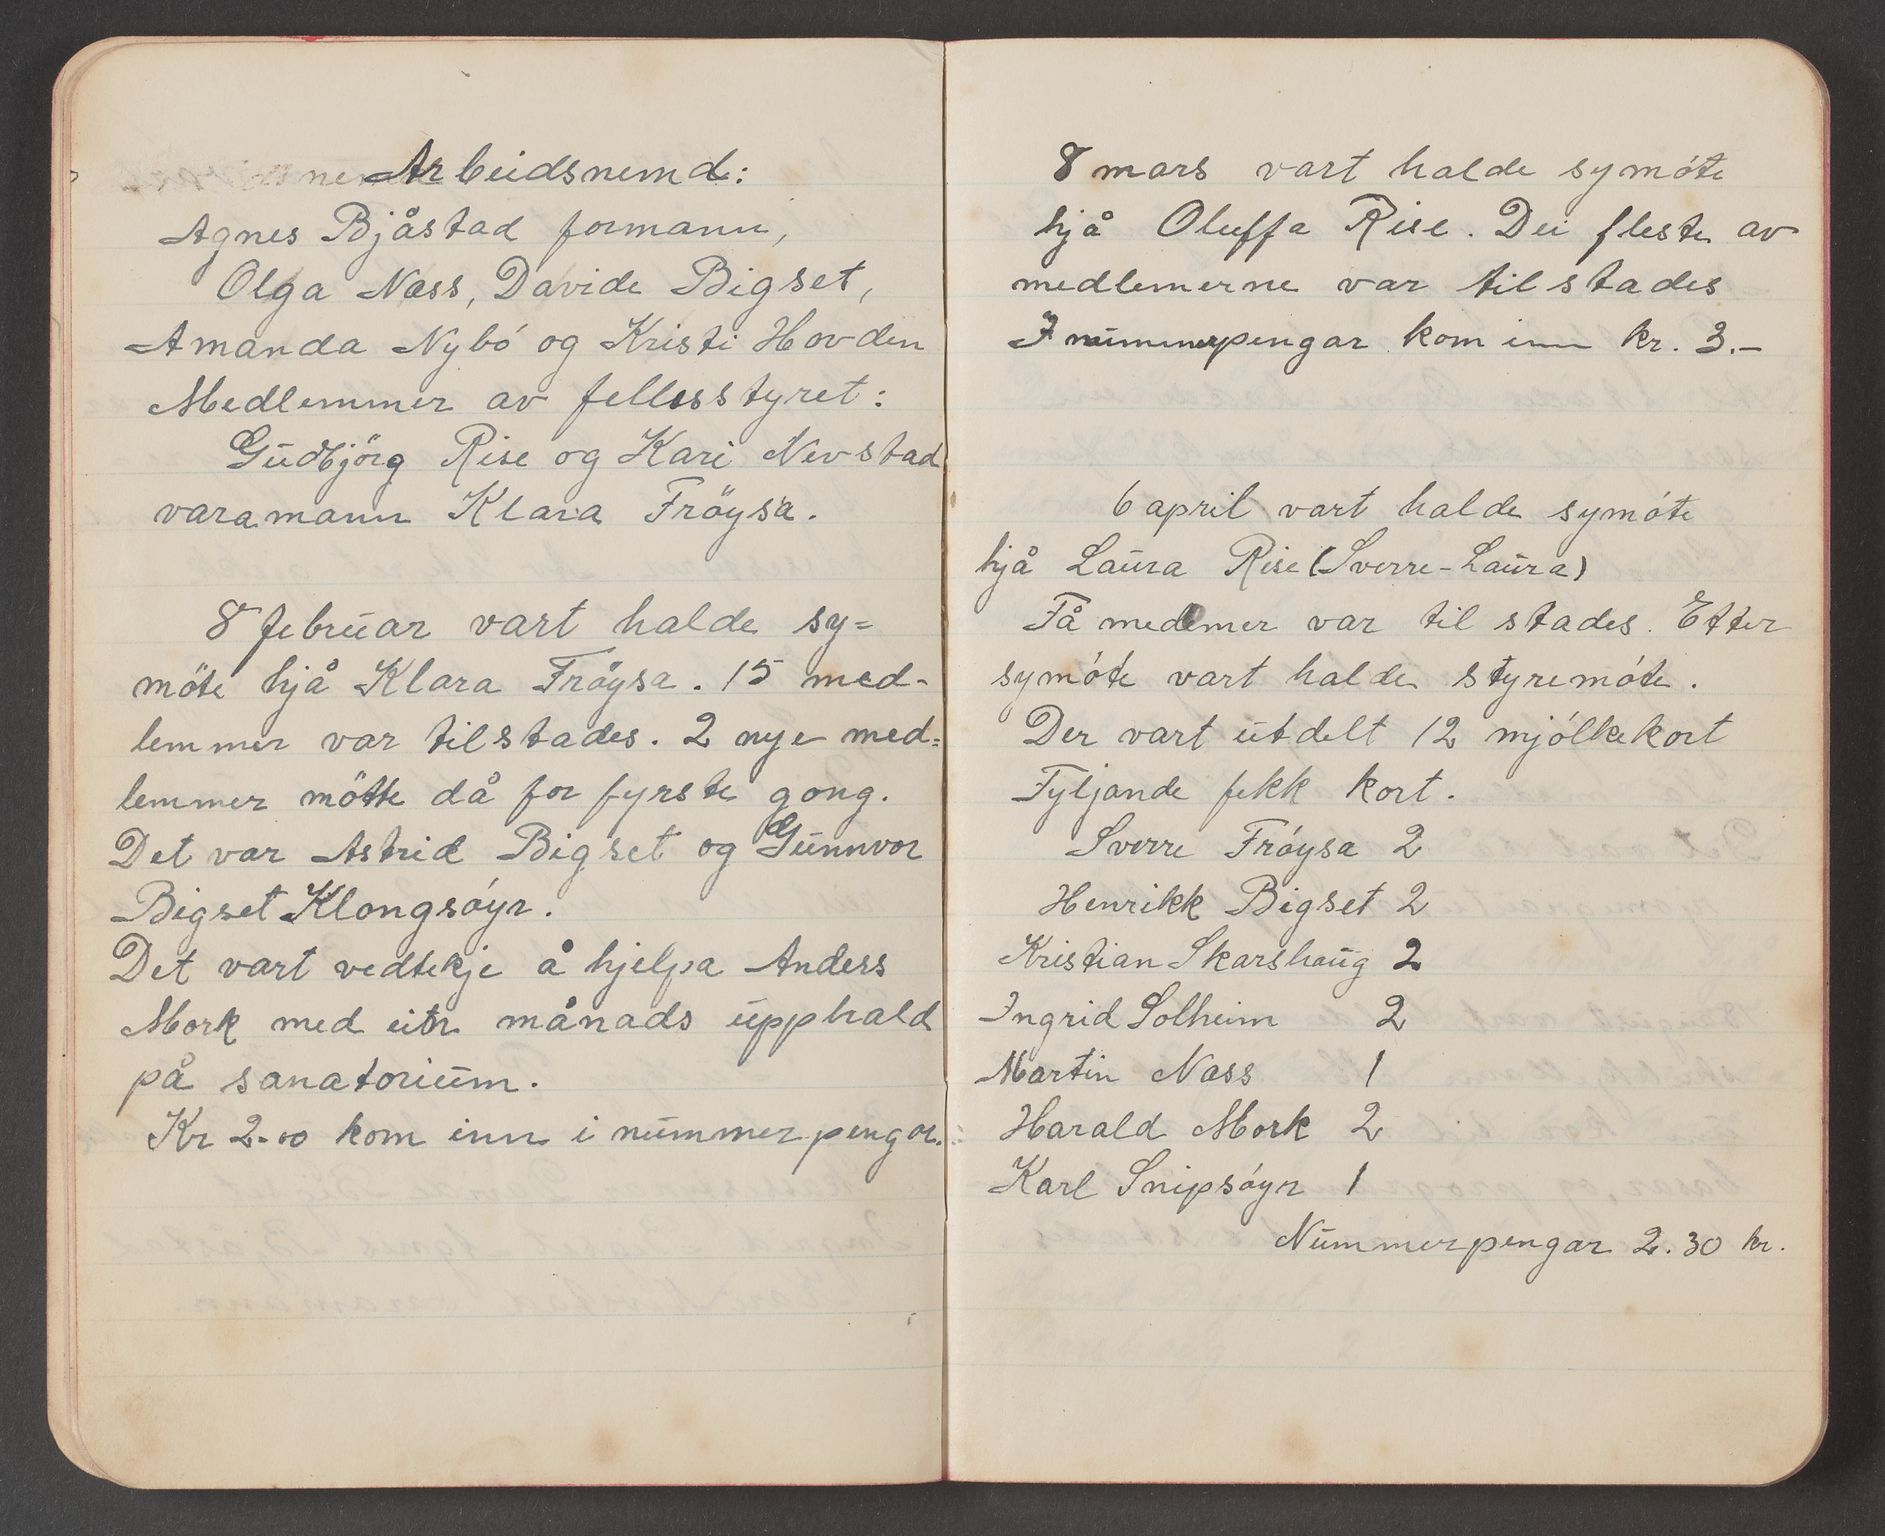 Arbeidsnemd:
Agnes Bjåstad formann,
Olga Næss, Davide Bigset,
Amanda Nybó og Kristi Hovden
Medlemmer av fellesstyret:
Gudbjörg Rise og Kari Nevstad
varamann Klara Fröysa.
8 februar vart halde sy=
möte hjå Klara Fröysa. 15 med-
lemmer var tilstades. 2 nye med=
lemmer mötte då for fyrste gong.
Det var Astrid Bigset og Gunnvor
Bigset Klongsóyr.
Det vart vedtekje å hjelpa Anders
Mork med eitn månads upphald
på sanatorium.
Kr 2-00 kom inn i nummerpengar.
8 mars vart halde symóte
hjå Oluffa Rise. Dei fleste av
medlemerne var tilstades
I nummerpengar kom inn kr. 3.-
6 april vart halde symóte
hjå Laura Rise (Sverre-Laura)
Få medlemer var til stades. Etter
symóte vart halde styremóte.
Der vart utdelt 12 mjólkekort
Fyljande fekk kort.
Sverre Fróysa 2
Henrikk Bigset 2
Kristian Skarshaug 2
Ingrid Solheim 2
Martin Næss 1
Harald Mork 2
Karl Snipsóyr 1
Nummerpengar 2.30 kr.